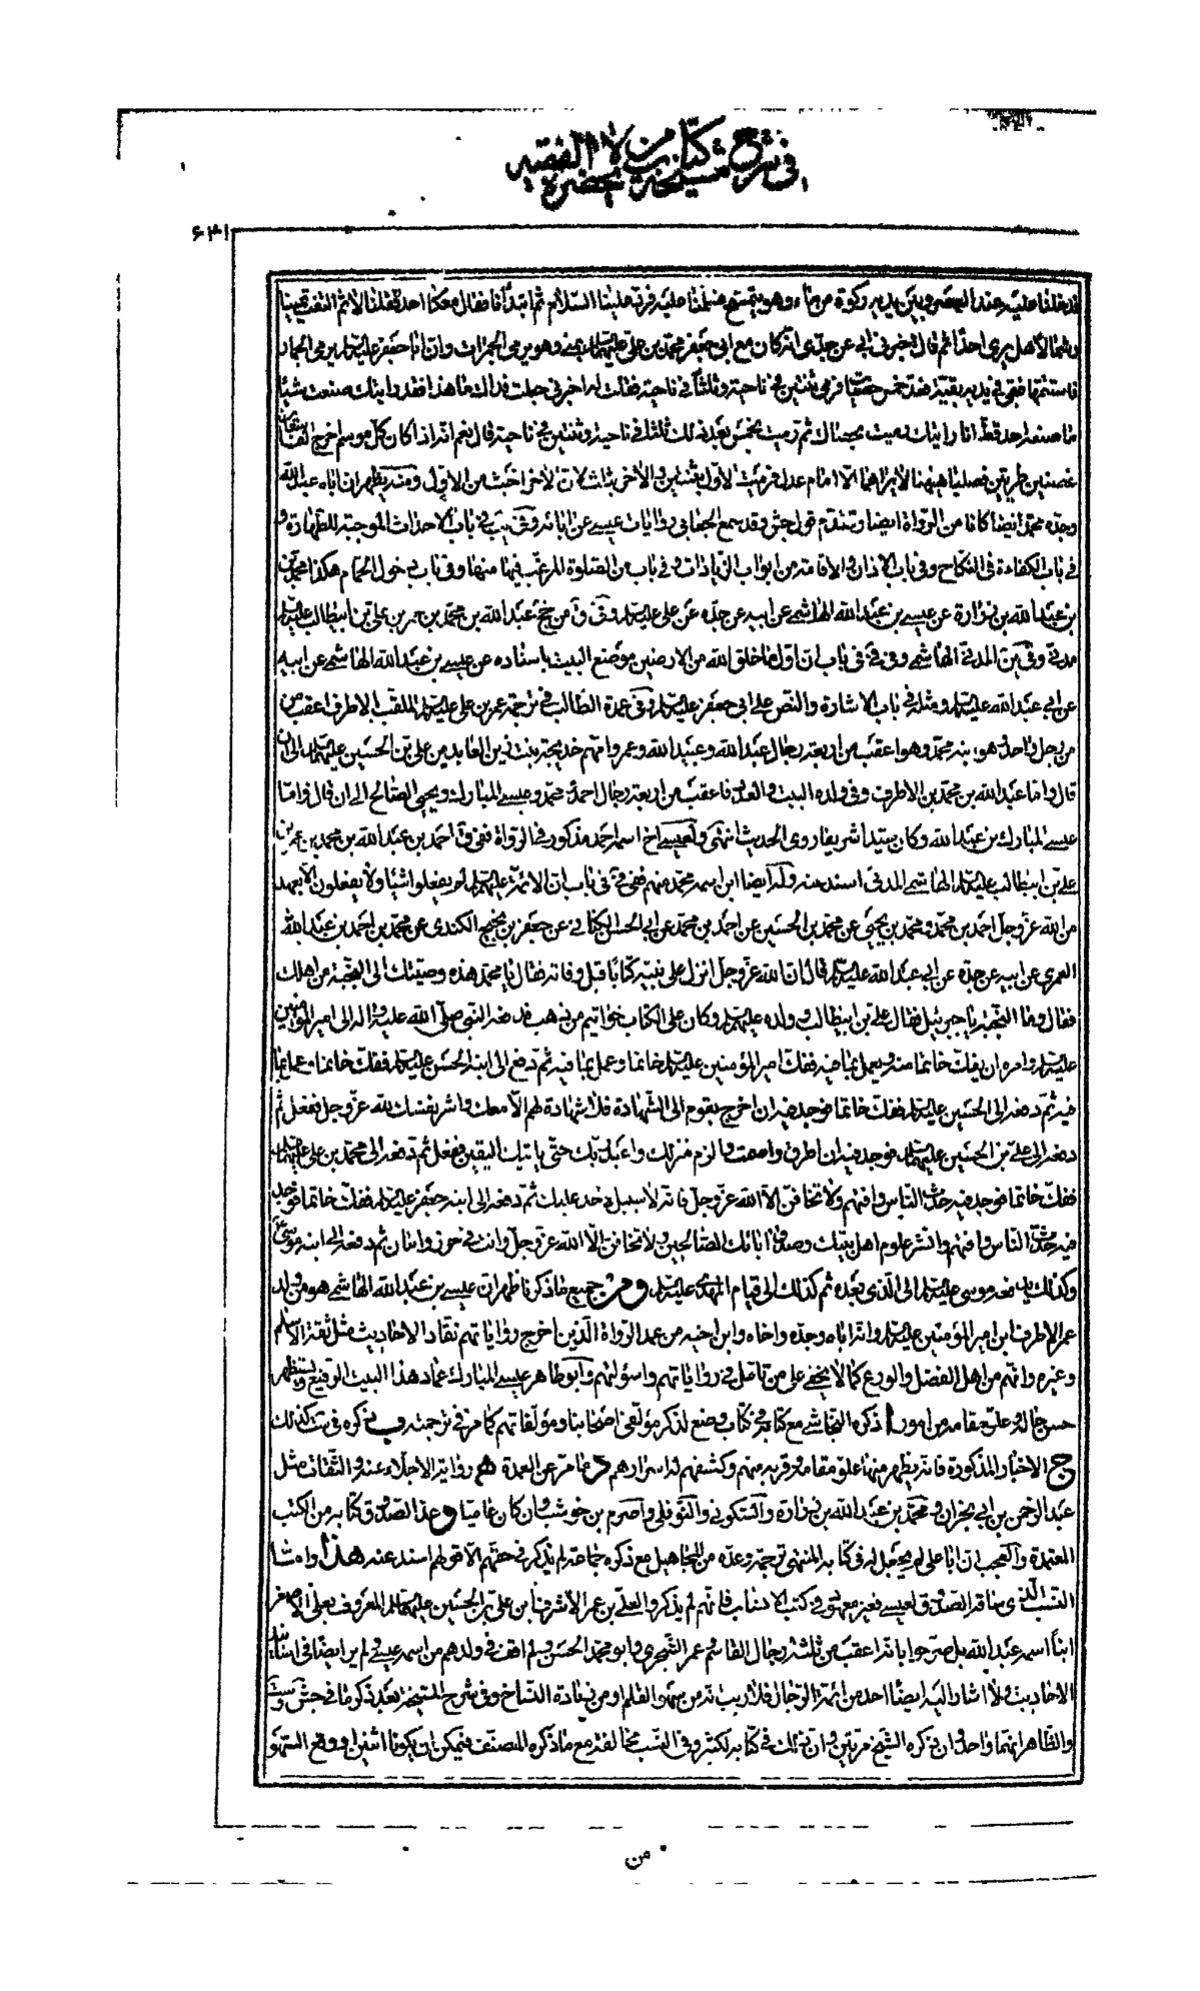 في شرح مشيخة كتاب من لا يحضره الفقيه
۶۴۱
فدخلنا عليه عند العصر وبين يديه ركوة من ماء وهو يتمسح فسلمنا عليه فرد علينا السلام ثم ابتدأنا فقال معكما احد فقلنا لا ثم التفت يمينا
وشمالا هل يرى احدا ثم قال اخبرني ابي عن جدي انه كان مع ابي جعفر محمد بن علي عليهما السلام بمنى وهو يرمي الجمرات وان ابا جعفر عليه السلام رمى الجمار
فاستتمها فبقي في يديه بقية فعد خمس حصيات فرمى ثنتين في ناحية وثلثا في ناحية فقلت له اخبرني جعلت فداك ما هذا فقد رايتك صنعت شيئا
ما صنعه احد قط انا رايتك رميت بحصاك ثم رميت بخمس بعد ذلك ثلثا في ناحية وثنتين في ناحية قال نعم انه اذا كان كل موسم اخرج الفاسقان
غضين طريين فصلبا هيهنا لا يراهما الا امام عدل فرميت الاول بثنتين والاخر بثلث لان الاخر اخبث من الاول ومنه يظهر ان اباه عبد الله
وجده محمد ايضا كانا من الرواة ايضا وتقدم قول جش وقد سمع الجعابي روايات عيسى عن ابائه وفي يب في باب الاحداث الموجبة للطهارة و
في باب الكفاءة في النكاح وفي باب الاذان والاقامة من ابواب الزيادات وفي باب من الصلوة المرغب فيها منها وفي باب دخول الحمام هكذا محمد
بن عبد الله بن زرارة عن عيسى بن عبد الله الهاشمي عن ابيه عن جده عن علي عليه السلام وفي ق من جخ عبد الله بن محمد بن عمر بن علي بن ابيطالب عليه السلام
مدني وفي ين المدني الهاشمي وفي في في باب ان اول ما خلق الله من الارضين موضع البيت باسناده عن عيسى بن عبد الله الهاشمي عن ابيه
عن ابي عبد الله عليه السلام ومثله في باب الاشارة والنص على ابي جعفر عليه السلام وفي عمدة الطالب في ترجمة عمر بن علي عليه السلام الملقب بالاطرف اعقب
من رجل واحد وهو ابنه محمد وهو اعقب من اربعة رجال عبد الله وعبيد الله وعمر وامهم خديجة بنت زين العابدين علي بن الحسين عليهما السلام الى ان
قال واما عبد الله بن محمد بن الاطرف وفي ولده البيت والعدد فاعقب من اربعة رجال احمد ومحمد وعيسى المبارك ويحيى الصالح الى ان قال واما
عيسى المبارك بن عبد الله وكان سيدا شريفا روى الحديث انتهى ولعيسى اخ اسمه احمد مذكور في الرواة ففي ق احمد بن عبد الله بن محمد بن عمر بن
علي بن ابيطالب عليه السلام الهاشمي المدني اسند عنه وله ايضا ابن اسمه محمد منهم ففي في في باب ان الائمة عليهم السلام لم يفعلوا شيئا ولا يفعلون الا بعهد
من الله عز وجل احمد بن محمد ومحمد بن يحيى عن محمد بن الحسين عن احمد بن محمد عن ابي الحسن الكناني عن جعفر بن نجيح الكندي عن محمد بن احمد بن عبد الله
العمري عن ابيه عن جده عن ابي عبد الله عليه السلام قال ان الله عز وجل انزل على نبيه كتابا قبل وفاته فقال يا محمد هذه وصيتك الى النجبة من اهلك
فقال وما النجبة يا جبرئيل فقال علي بن ابيطالب وولده عليهم السلام وكان على الكتاب خواتيم من ذهب فدفعه النبي صلى الله عليه واله الى امير المؤمنين
عليه السلام وامره ان يفك خاتما منه ويعمل بما فيه ففك امير المؤمنين عليه السلام خاتما وعمل بما فيه ثم دفع الى ابنه الحسن عليه السلام ففك خاتما وعمل بما
فيه ثم دفعه الى الحسين عليه السلام ففك خاتما فوجد فيه ان اخرج بقوم الى الشهادة فلا شهادة لهم الا معك واشر نفسك لله عز وجل ففعل ثم
دفعه الى علي بن الحسين عليهما السلام فوجد فيه ان اطرق واصمت والزم منزلك واعبد ربك حتى ياتيك اليقين ففعل ثم دفعه الى محمد بن علي عليهما السلام
ففك خاتما فوجد فيه حدث الناس وافتهم ولا تخافن الا الله عز وجل فانه لا سبيل لاحد عليك ثم دفعه الى ابنه جعفر عليه السلام ففك خاتما فوجد
فيه حدث الناس وافتهم وانشر علوم اهل بيتك وصدق ابائك الصالحين ولا تخافن الا الله عز وجل وانت في حرز وامان ثم دفعه الى ابنه موسى
وكذلك يدفعه موسى عليه السلام الى الذي بعده ثم كذلك الى قيام المهدي عليه السلام ومن جميع ما ذكرنا ظهر ان عيسى بن عبد الله الهاشمي هو من ولد
عمر الاطرف ابن امير المؤمنين عليه السلام وانه اباه وجده واخاه وابن اخيه من عمد الرواة الذين اخرج رواياتهم نقاد الاحاديث مثل ثقة الاسلام
وغيره وانهم من اهل الفضل والورع كما لا يخفى على من تامل في رواياتهم واسؤلتهم وابو طاهر عيسى المبارك عماد هذا البيت الرفيع ويستظهر
حسن حاله وعلو مقامه من امور ا ذكره النجاشي مع كتابه في كتاب وضع لذكر مؤلفي اصحابنا ومؤلفاتهم كما مر في ترجمته ب ذكره في ست كذلك
ج الاخبار المذكورة فانه يظهر منها علو مقامه وقربه منهم وكشفهم له اسرارهم د ما مر عن العمدة ه رواية الاجلاء عنه والثقات مثل
عبد الرحمن بن ابي نجران ومحمد بن عبد الله بن زرارة والسكوني والنوفلي واصرم بن حوشب وان كان عاميا و عد الصدوق كتابه من الكتب
المعتمدة والعجب ان ابا علي لم يجعل له في كتابه المنتهى ترجمة وعده من المجاهيل مع ذكره جماعة لم يذكر في حقهم الا قولهم اسند عنه هذا واما
النسب الذي ساقه الصدوق لعيسى فغير معهود في كتب الانساب فانهم لم يذكروا لعلي بن عمر الاشرف ابن علي بن الحسين عليهما السلام المعروف بعلي الاصغر
ابنا اسمه عبد الله بل صرحوا بانه اعقب من ثلثة رجال القاسم وعمر الشجري وابو محمد الحسن ولم اقف في ولدهم من اسمه عيسى ولم ير ايضا في اسانيد
الاحاديث ولا اشار اليه ايضا احد من ائمة الرجال فلا ريب انه من سهو القلم او من زيادة النساخ وفي شرح المشيخة بعد ذكر ما في جش وست
والظاهر انهما واحد وان ذكره الشيخ مرتين وان ذلك في كتابه لكثير وفي النسب مخالفة مع ما ذكره المصنف فيمكن ان يكونا اثنين او وقع السهو
من